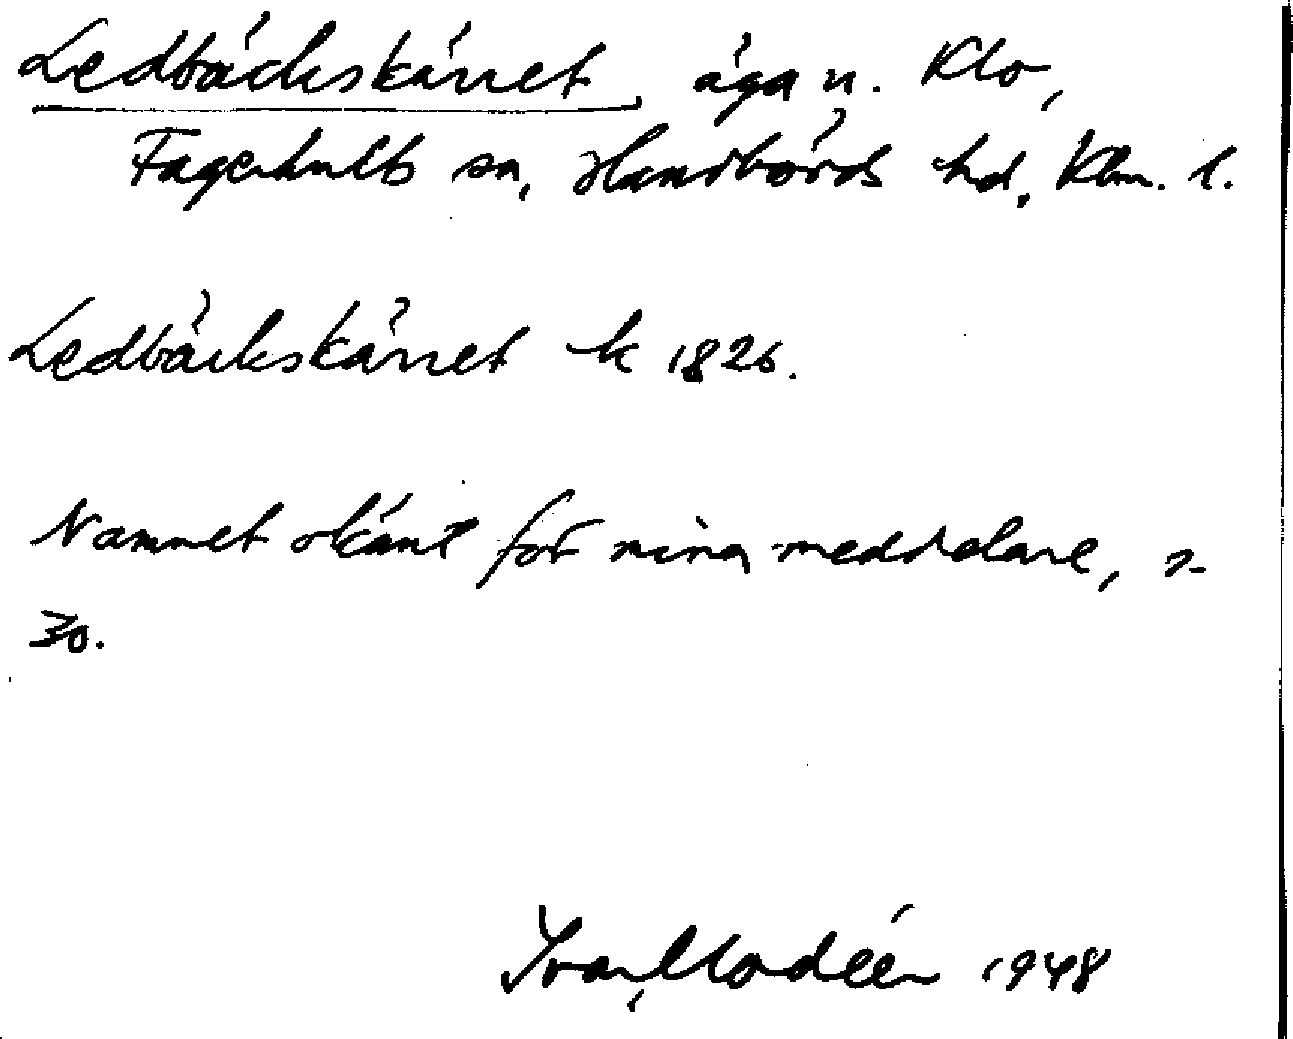 Ledbäckskärret, ägan. Klo,
Fagerhults sn, Handbörds hd, Klm. l.
Ledbäckskärret k 1826.
Namnet okänt för mina meddelare,
30.
Ivar Modéer 1948